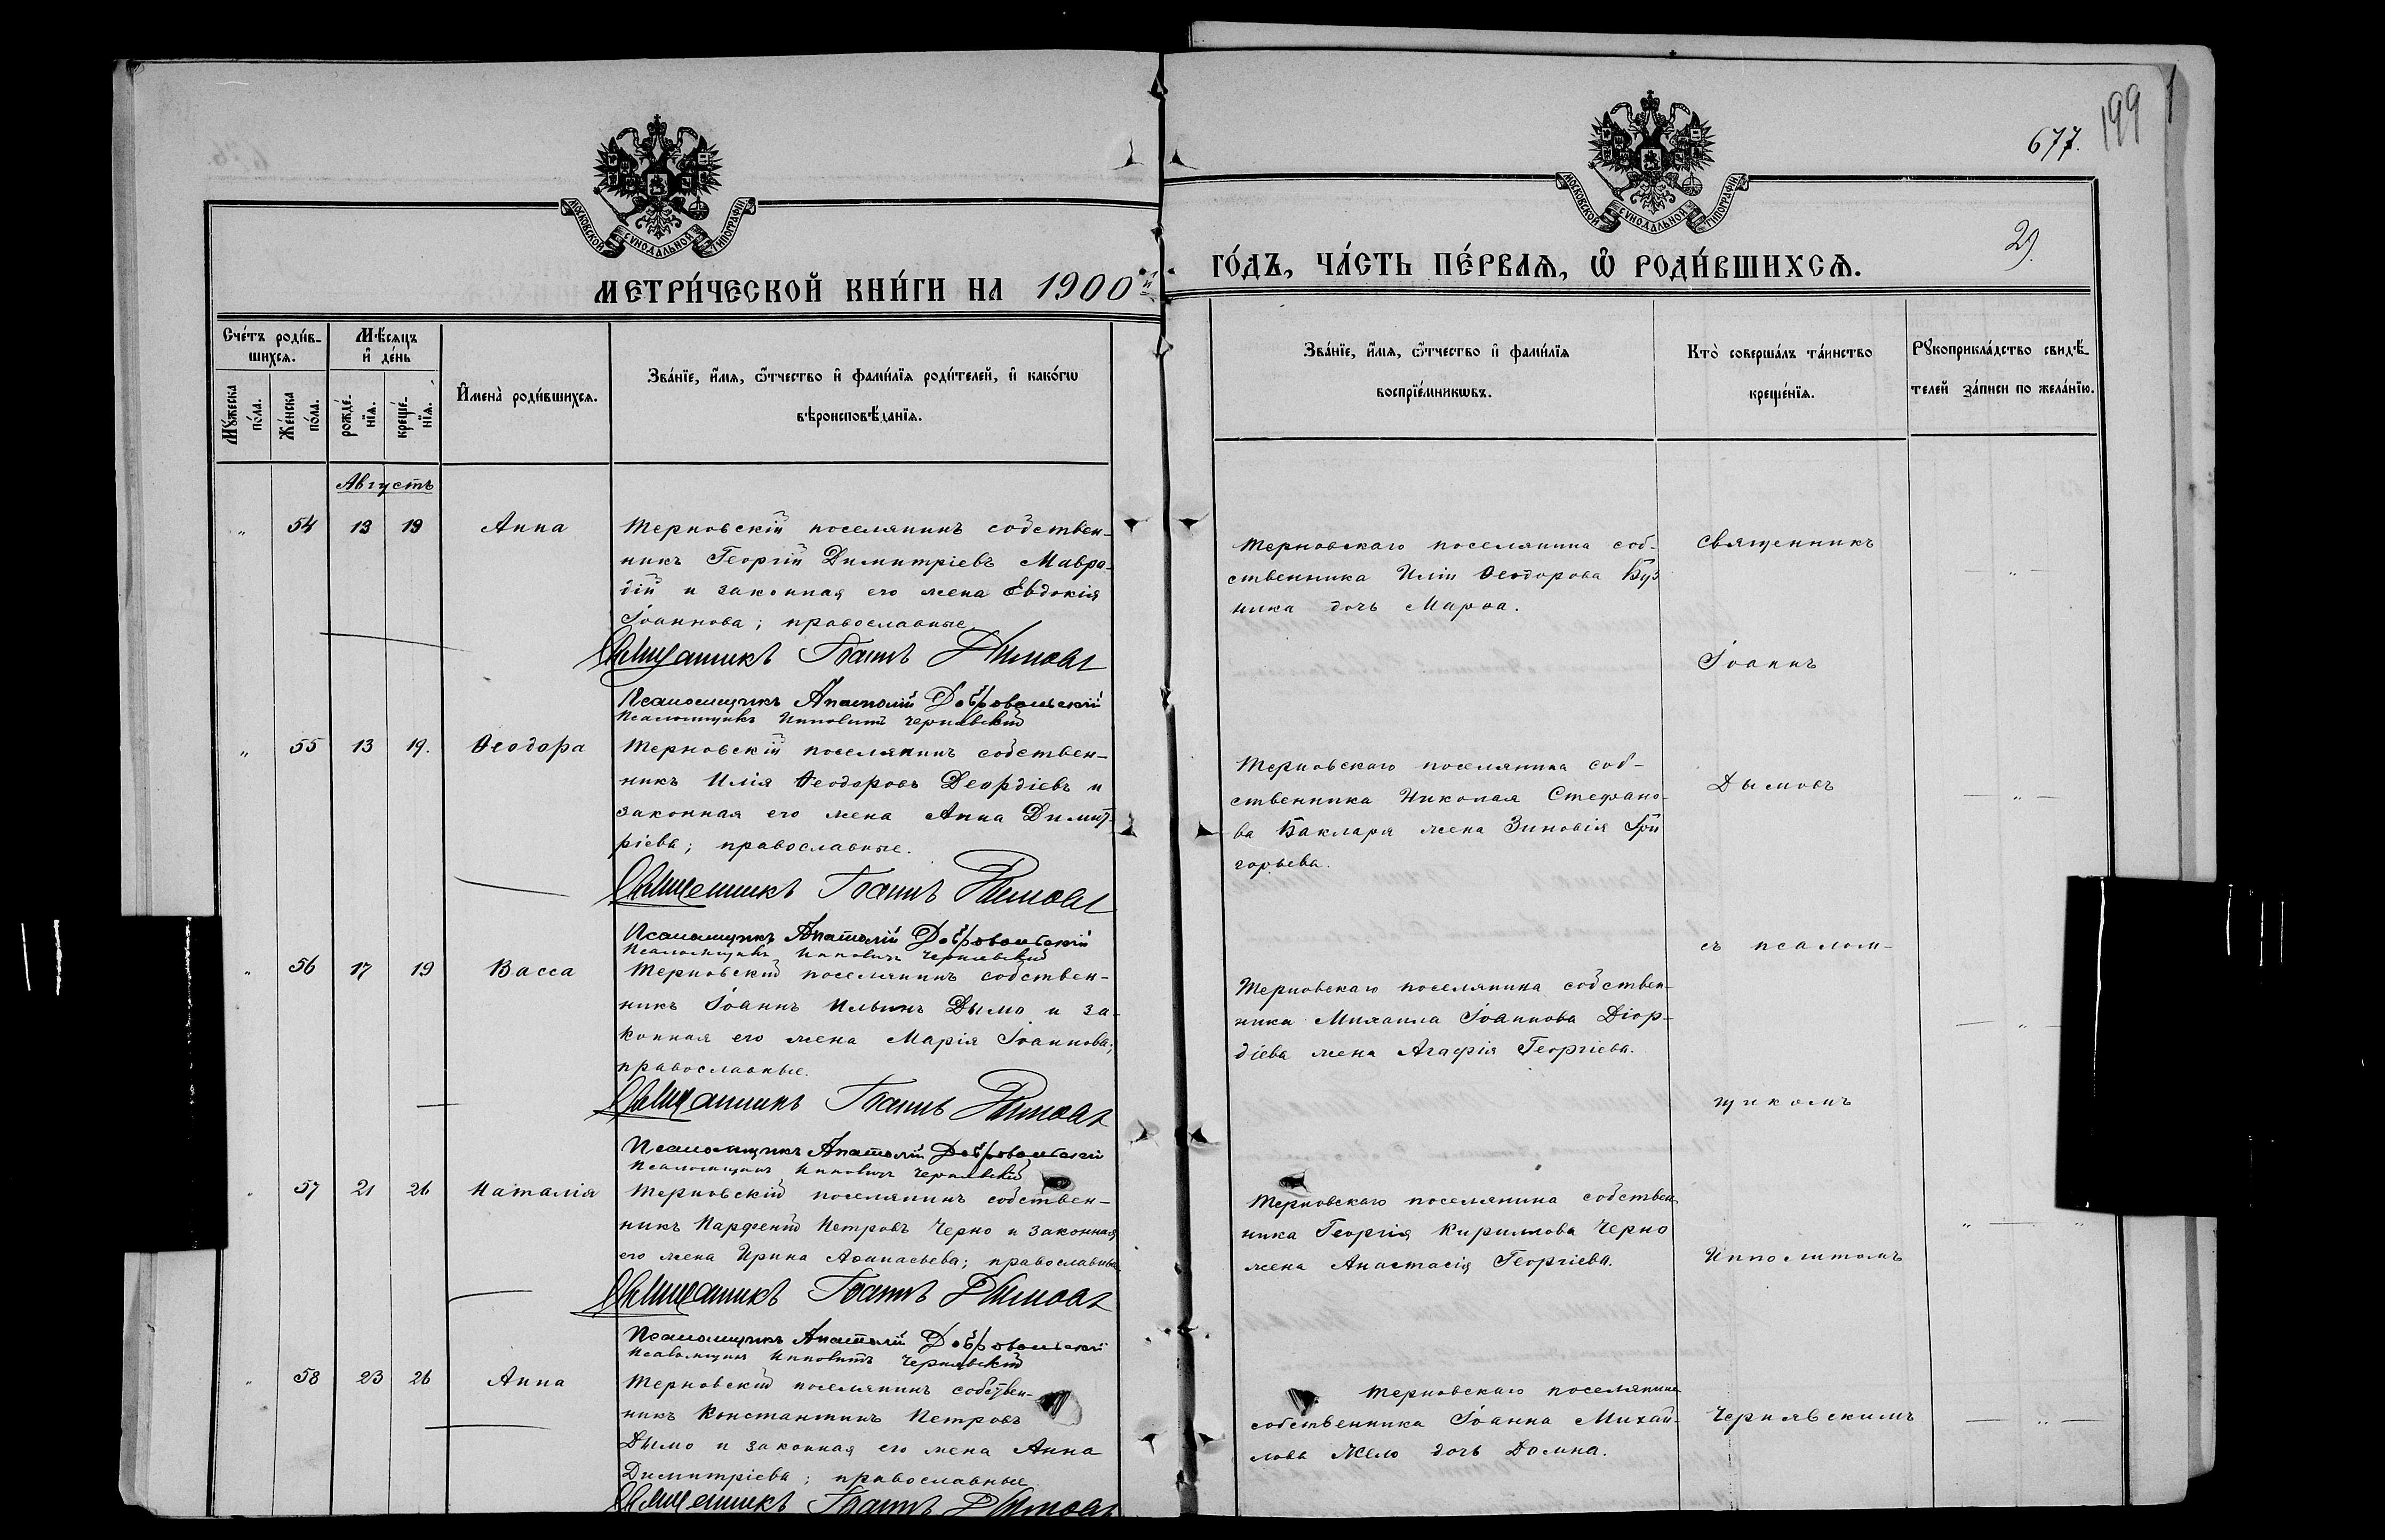 677.
199
МОСКОВСКОЙ СѴНОДАЛЬНОЙ ТИПОГРАФІИ
МОСКОВСКОЙ СѴНОДАЛЬНОЙ ТИПОГРАФІИ
29.
МЕТРИ́ЧЕСКОЙ КНИ́ГИ НА 1900й
ГО́ДЪ, ЧА́СТЬ ПЕ́РВАѦ, Ѡ҆ РОДИ́ВШИХСѦ.
Сче́тъ роди́в-
шихсѧ.
Мꙋ́жеска по́ла.
Же́нска по́ла.
Мѣ́сѧцъ
и҆ де́нь
рожде́-
нїѧ.
креще́-
нїѧ.
И҆мена̀ роди́вшихсѧ.
Зва́нїе, и҆́мѧ, ѻ҆́тчество и҆ фами́лїѧ роди́телей, и҆ како́гѡ
вѣроисповѣ́данїѧ.
Зва́нїе, и҆́мѧ, ѻ҆́тчество и҆ фами́лїѧ
воспрїе́мникѡвъ.
Кто̀ соверша́лъ та́инство
креще́нїѧ.
Рꙋкоприкла́дство свидѣ́-
телей за́писи по жела́нїю.
Августъ
" 54 13 19 Анна
Терновскій поселянинъ собствен-
никъ Георгій Димитріевъ Мавро-
дій и законная его жена Евдокія
Іоаннова; православные.
Священникъ Іоаннъ Дымовъ
Псаломщикъ Анатолій Добровольскій
Псаломщикъ Ипполитъ Чернявскій
Терновскаго поселянина соб-
ственника Иліи Ѳеодорова Буз
ника дочь Марѳа.
Священникъ
— " —
Іоаннъ
" 55 13 19. Ѳеодора
Терновскій поселянинъ собствен-
никъ Илія Ѳеодоровъ Деордіевъ и
законная его жена Анна Димит-
ріева; православные.
Священникъ Іоаннъ Дымовъ
Псаломщикъ Анатолій Добровольскій
Псаломщикъ Ипполитъ Чернявскій
Терновскаго поселянина соб-
ственника Николая Стефано-
ва Бакларя жена Зиновія Гри
горьева.
Дымовъ
— " —
съ псалом-
" 56 17 19 Васса
Терновскій поселянинъ собствен-
никъ Іоаннъ Ильинъ Дымо и за-
конная его жена Марія Іоаннова;
православные.
Священникъ Іоаннъ Дымовъ
Псаломщикъ Анатолій Добровольскій
Псаломщикъ Ипполитъ Чернявскій
Терновскаго поселянина собствен-
ника Михаила Іоаннова Діор-
діева жена Агафія Георгіева.
— " —
щикомъ
" 57 21 26 Наталія
Терновскій поселянинъ собствен-
никъ Парфеній Петровъ Черно и законная
его жена Ирина Аѳанасьева; православные
Священникъ Іоаннъ Дымовъ
Псаломщикъ Анатолій Добровольскій
Псаломщикъ Ипполитъ Чернявскій
Терновскаго поселянина собствен
ника Георгія Кириллова Черно
жена Анастасія Георгіева.
Ипполитомъ
" — "
" 58 23 26 Анна
Терновскій поселянинъ собствен-
никъ Константинъ Петровъ
Дымо и законная его жена Анна
Димитріева; православные.
Священникъ Іоаннъ Дымовъ
Терновскаго поселянина
собственника Іоанна Михай-
лова Жело дочь Домна.
Чернявскимъ
— " —